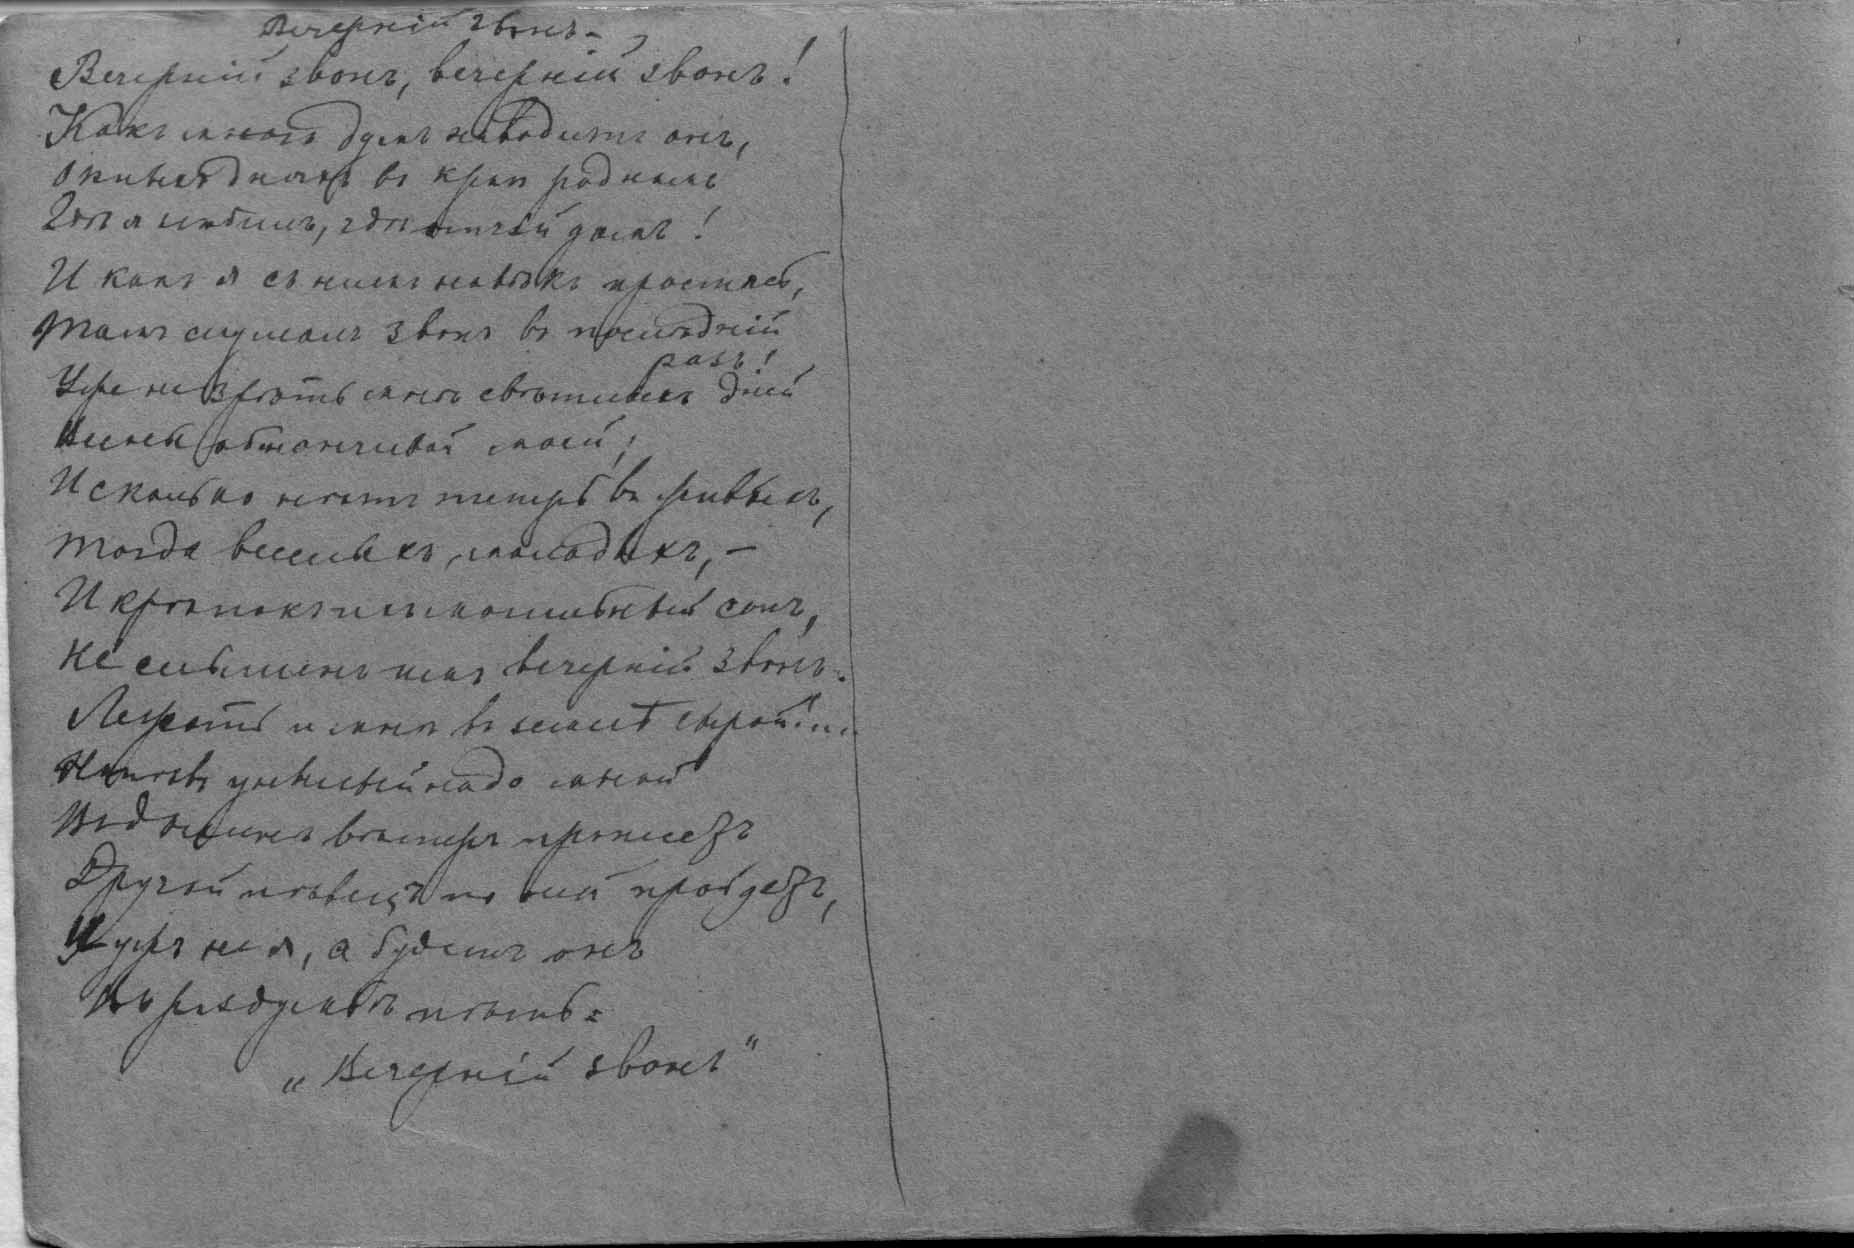 Вечерній звонъ.
Вечерній звонъ, вечерній звонъ!
Какъ много думъ наводитъ онъ,
О юныхъ дняхъ въ краю родномъ
Гдѣ я любилъ, гдѣ отчій домъ!
И какъ я съ нимъ навѣкъ простясь,
Тамъ слушалъ звонъ въ послѣдній
разъ!
Уже не зрѣть мнѣ свѣтлыхъ дней
Весны обманчивой моей;
И сколько нѣтъ теперь въ живыхъ,
Тогда веселыхъ, молодыхъ, –
И крѣпокъ ихъ могильный сонъ,
Не слышенъ имъ вечерній звонъ.
Лежать и мнѣ въ землѣ сырой!...
Напѣвъ унывный надо мной
Въ долинѣ вѣтеръ пронесетъ
Другой пѣвецъ по ней пройдетъ,
И ужъ не я, а будетъ онъ
Въ раздумьѣ пѣть:
„Вечерній звонъ"